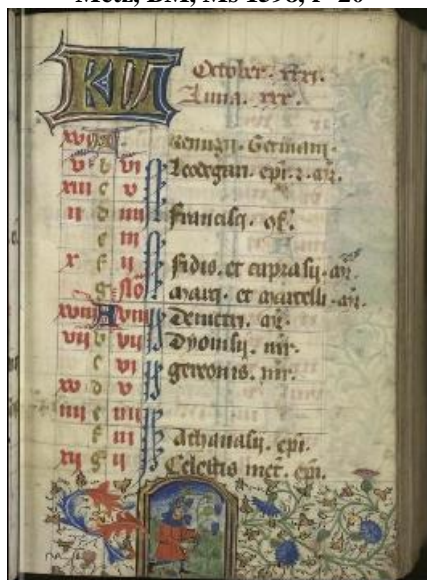 Metz, BM, Ms 1598, f° 20
KL October. xxxi.
Luna. xxx.
xvi A Remigii. Germani.
v b vi Leodegarii. epi. z. mr.
xiii c v
ii d iiii Francisci. of.
e iii
x f ii Fidis. et caprasii. mr.
g
xviii A viii Demetrii. mr.
vii b vii Dyonisii. mr.
c vi Gereonis. mr.
xv d v
iiii e iiii
f iii Athanasii. epi.
xii g ii Celestis met. epi.